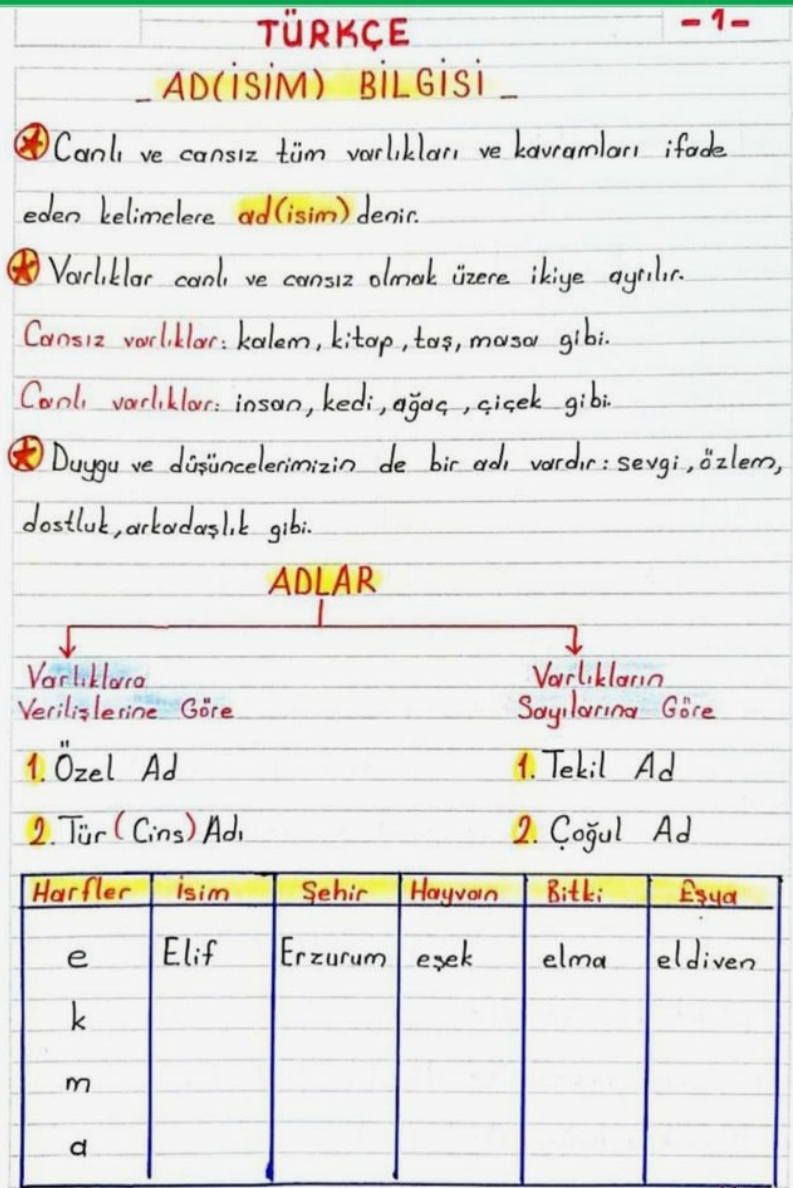 TÜRKÇE
-1-
_ AD(İSİM) BİLGİSİ _
Canlı ve cansız tüm varlıkları ve kavramları ifade
eden kelimelere ad(isim) denir.
Varlıklar canlı ve cansız olmak üzere ikiye ayrılır.
Cansız varlıklar: kalem, kitap, taş, masa gibi.
Canlı varlıklar: insan, kedi, ağaç, çiçek gibi.
Duygu ve düşüncelerimizin de bir adı vardır: sevgi, özlem,
dostluk, arkadaşlık gibi.
ADLAR
Varlıklara
Verilişlerine Göre
1. Özel Ad
2. Tür (Cins) Adı
Varlıkların
Sayılarına Göre
1. Tekil Ad
2. Çoğul Ad
Harfler İsim Şehir Hayvan Bitki Eşya
e Elif Erzurum eşek elma eldiven
k
m
a